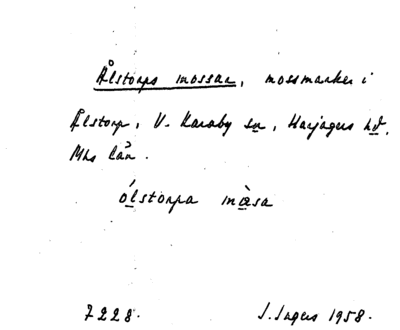 Ålstorps mossar, mossmarker i
Ålstorp, V. Karaby sn, Harjagers hd,
Mhs län.
ólstorpa màsa
7228. I. Ingers 1958.